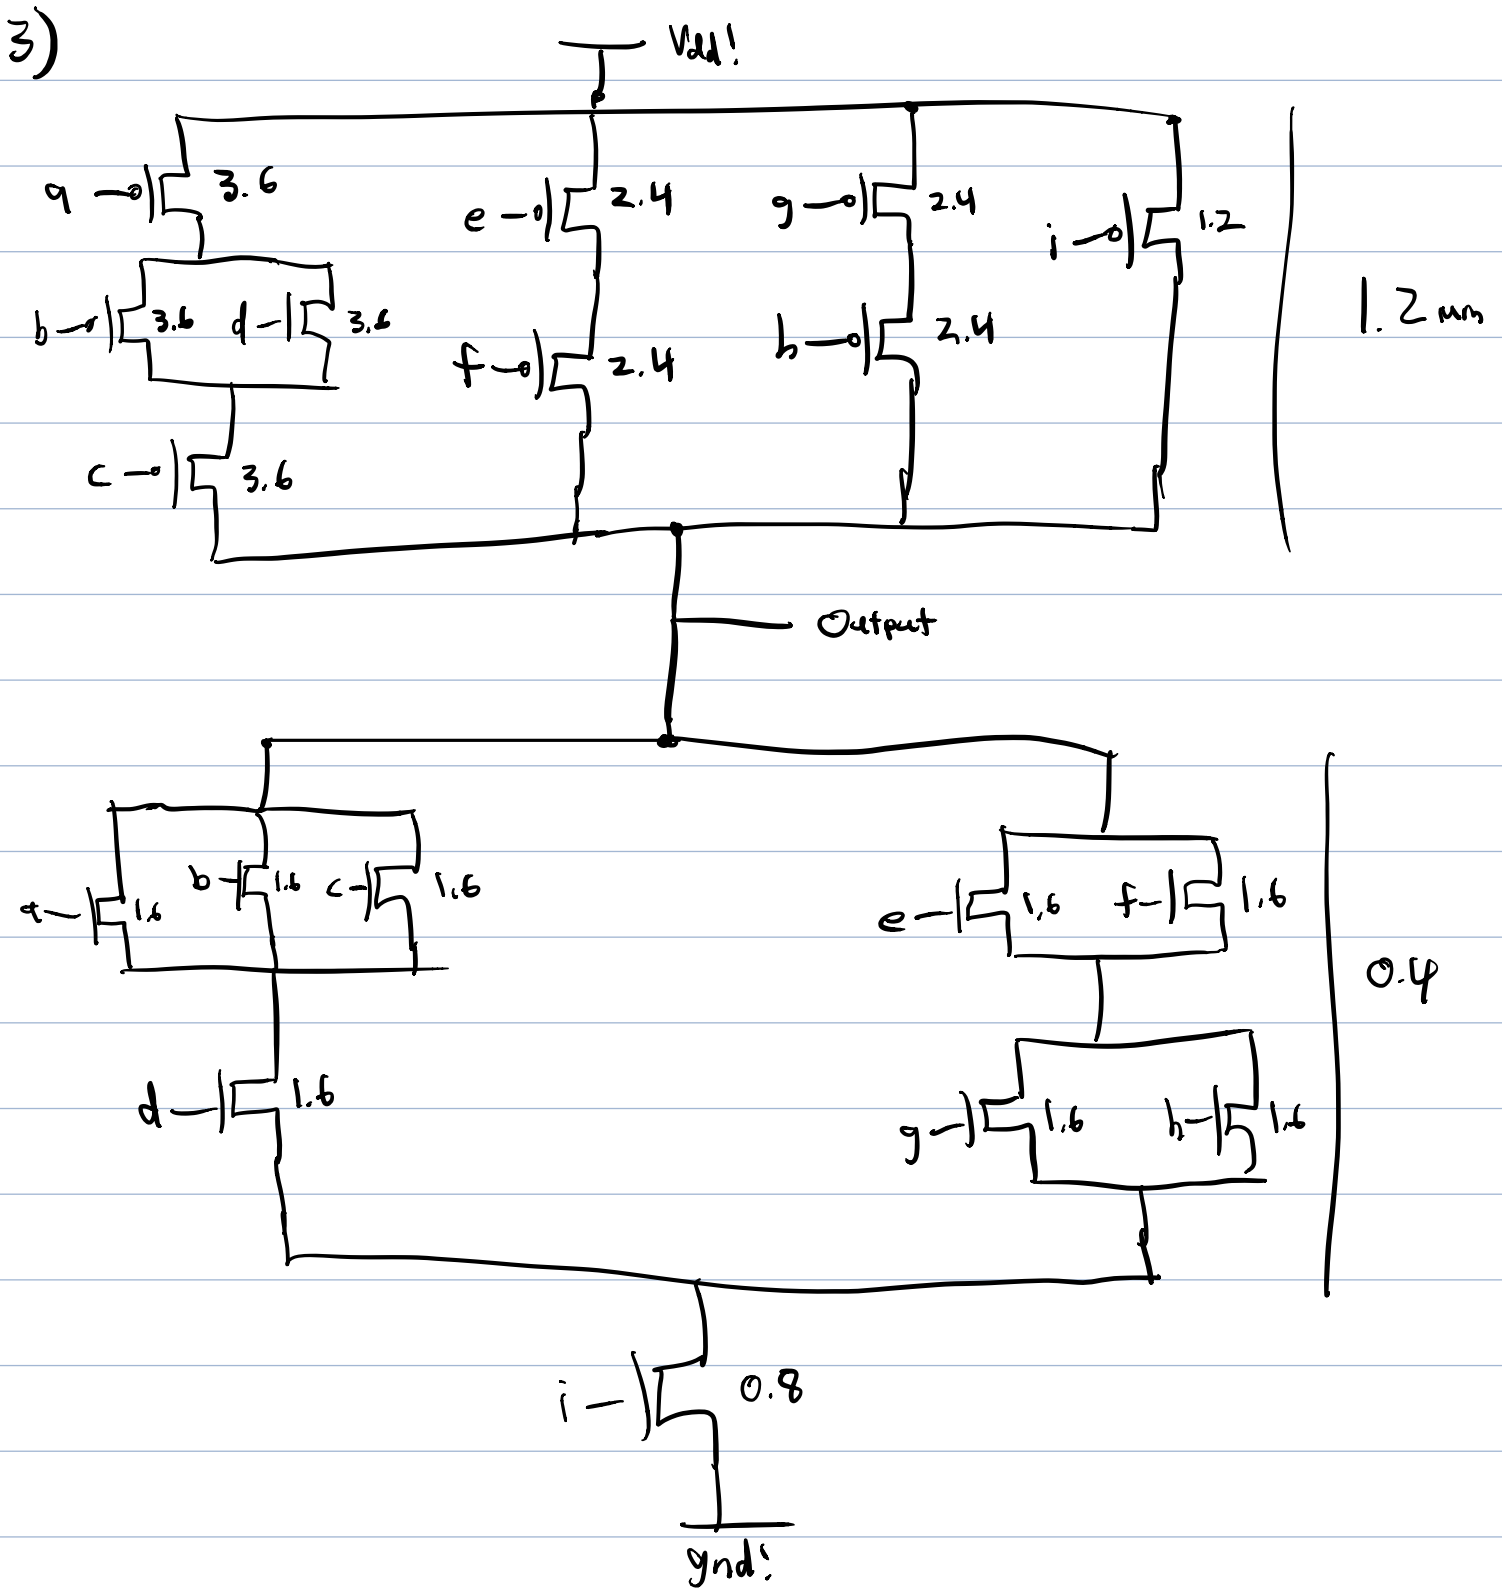 3)
Vdd!
a 3.6
e 2.4
g 2.4
i 1.2
b 3.6 d 3.6
f 2.4
h 2.4
1.2 um
c 3.6
Output
a 1.6
b 1.6
c 1.6
e 1.6
f 1.6
0.4
d 1.6
g 1.6
h 1.6
i 0.8
gnd!